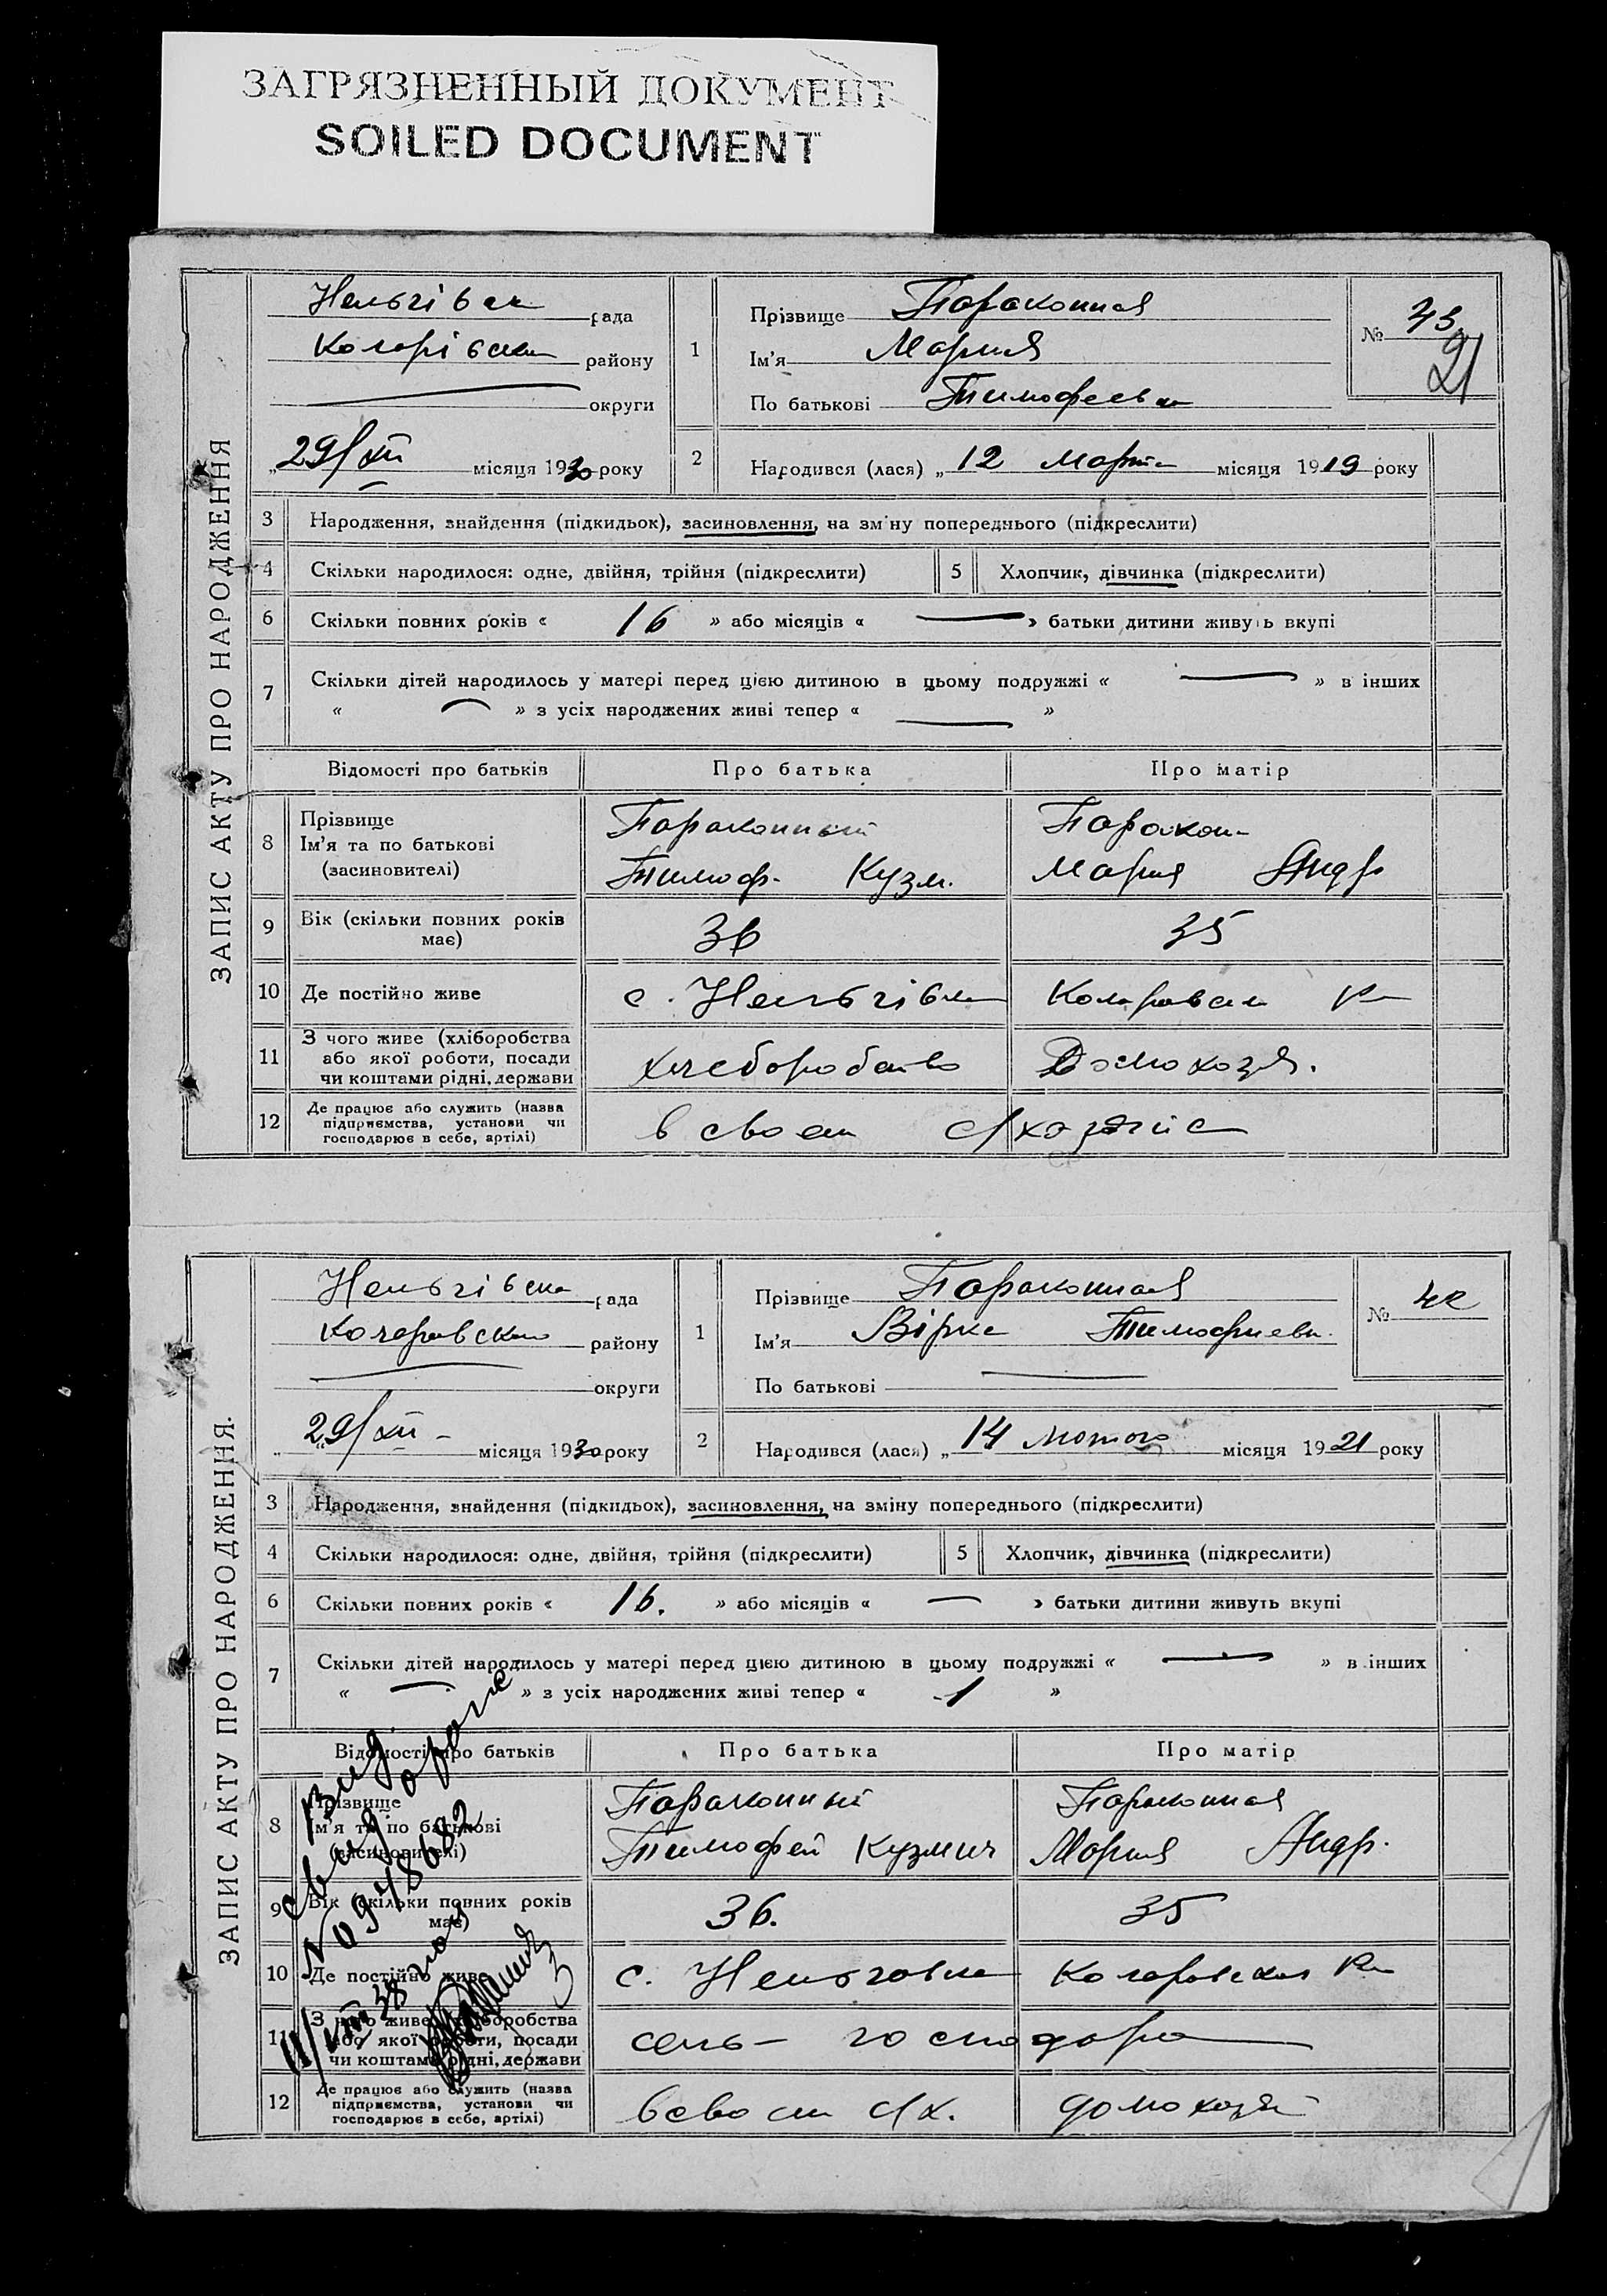 ЗАГРЯЗНЕННЫЙ ДОКУМЕНТ
SOILED DOCUMENT
ЗАПИС АКТУ ПРО НАРОДЖЕННЯ
Нельгівска рада
району
округи
„29/XII місяця 1930 року
1
Прізвище Пораконная
Ім'я Мария
По батькові Тимофеевн
№ 43
21
2
Народився (лася) „12 Марта місяця 1919 року
3 Народження, знайдення (підкидьок), засиновлення, на зміну попереднього (підкреслити)
4 Скільки народилося: одне, двійня, трійня (підкреслити) 5 Хлопчик, дівчинка (підкреслити)
6 Скільки повних років « 16 » або місяців « — » батьки дитини живуть вкупі
7 Скільки дітей народилось у матері перед цією дитиною в цьому подружжі « — » в інших
« — » з усіх народжених живі тепер « — »
Відомості про батьків Про батька Про матір
8 Прізвище
Ім'я та по батькові
(засиновителі)
Пораконный
Тимоф. Кузм.
Поракон-
Мария Андр
9 Вік (скільки повних років має) 36 35
10 Де постійно живе с. Нельгівка
11 З чого живе (хліборобства
або якої роботи, посади
чи коштами рідні, держави
хлеборобство Домохозя.
12 Де працює або служить (назва
підприємства, установи чи
господарює в себе, артілі)
в своем с/хозяйс
ЗАПИС АКТУ ПРО НАРОДЖЕННЯ.
Нельгівска рада
району
округи
„29/XII – місяця 1930 року
1
Прізвище Пораконная
Ім'я Вірка
По батькові —
№ 42
2
Народився (лася) „14 Лютого місяця 1921 року
3 Народження, знайдення (підкидьок), засиновлення, на зміну попереднього (підкреслити)
4 Скільки народилося: одне, двійня, трійня (підкреслити) 5 Хлопчик, дівчинка (підкреслити)
6 Скільки повних років « 16. » або місяців « — » батьки дитини живуть вкупі
7 Скільки дітей народилось у матері перед цією дитиною в цьому подружжі « — » в інших
« — » з усіх народжених живі тепер « 1 »
Відомості про батьків Про батька Про матір
8 Прізвище
Ім'я та по батькові
(засиновителі)
Пораконный
Тимофей Кузмич
Пораконная
Мария Андр.
9 Вік (скільки повних років має) 36. 35
10 Де постійно живе с. Нельговка
11 З чого живе (хліборобства
або якої роботи, посади
чи коштами рідні, держави
сель – господора
12 Де працює або служить (назва
підприємства, установи чи
господарює в себе, артілі)
в своем с/х. домохозяй